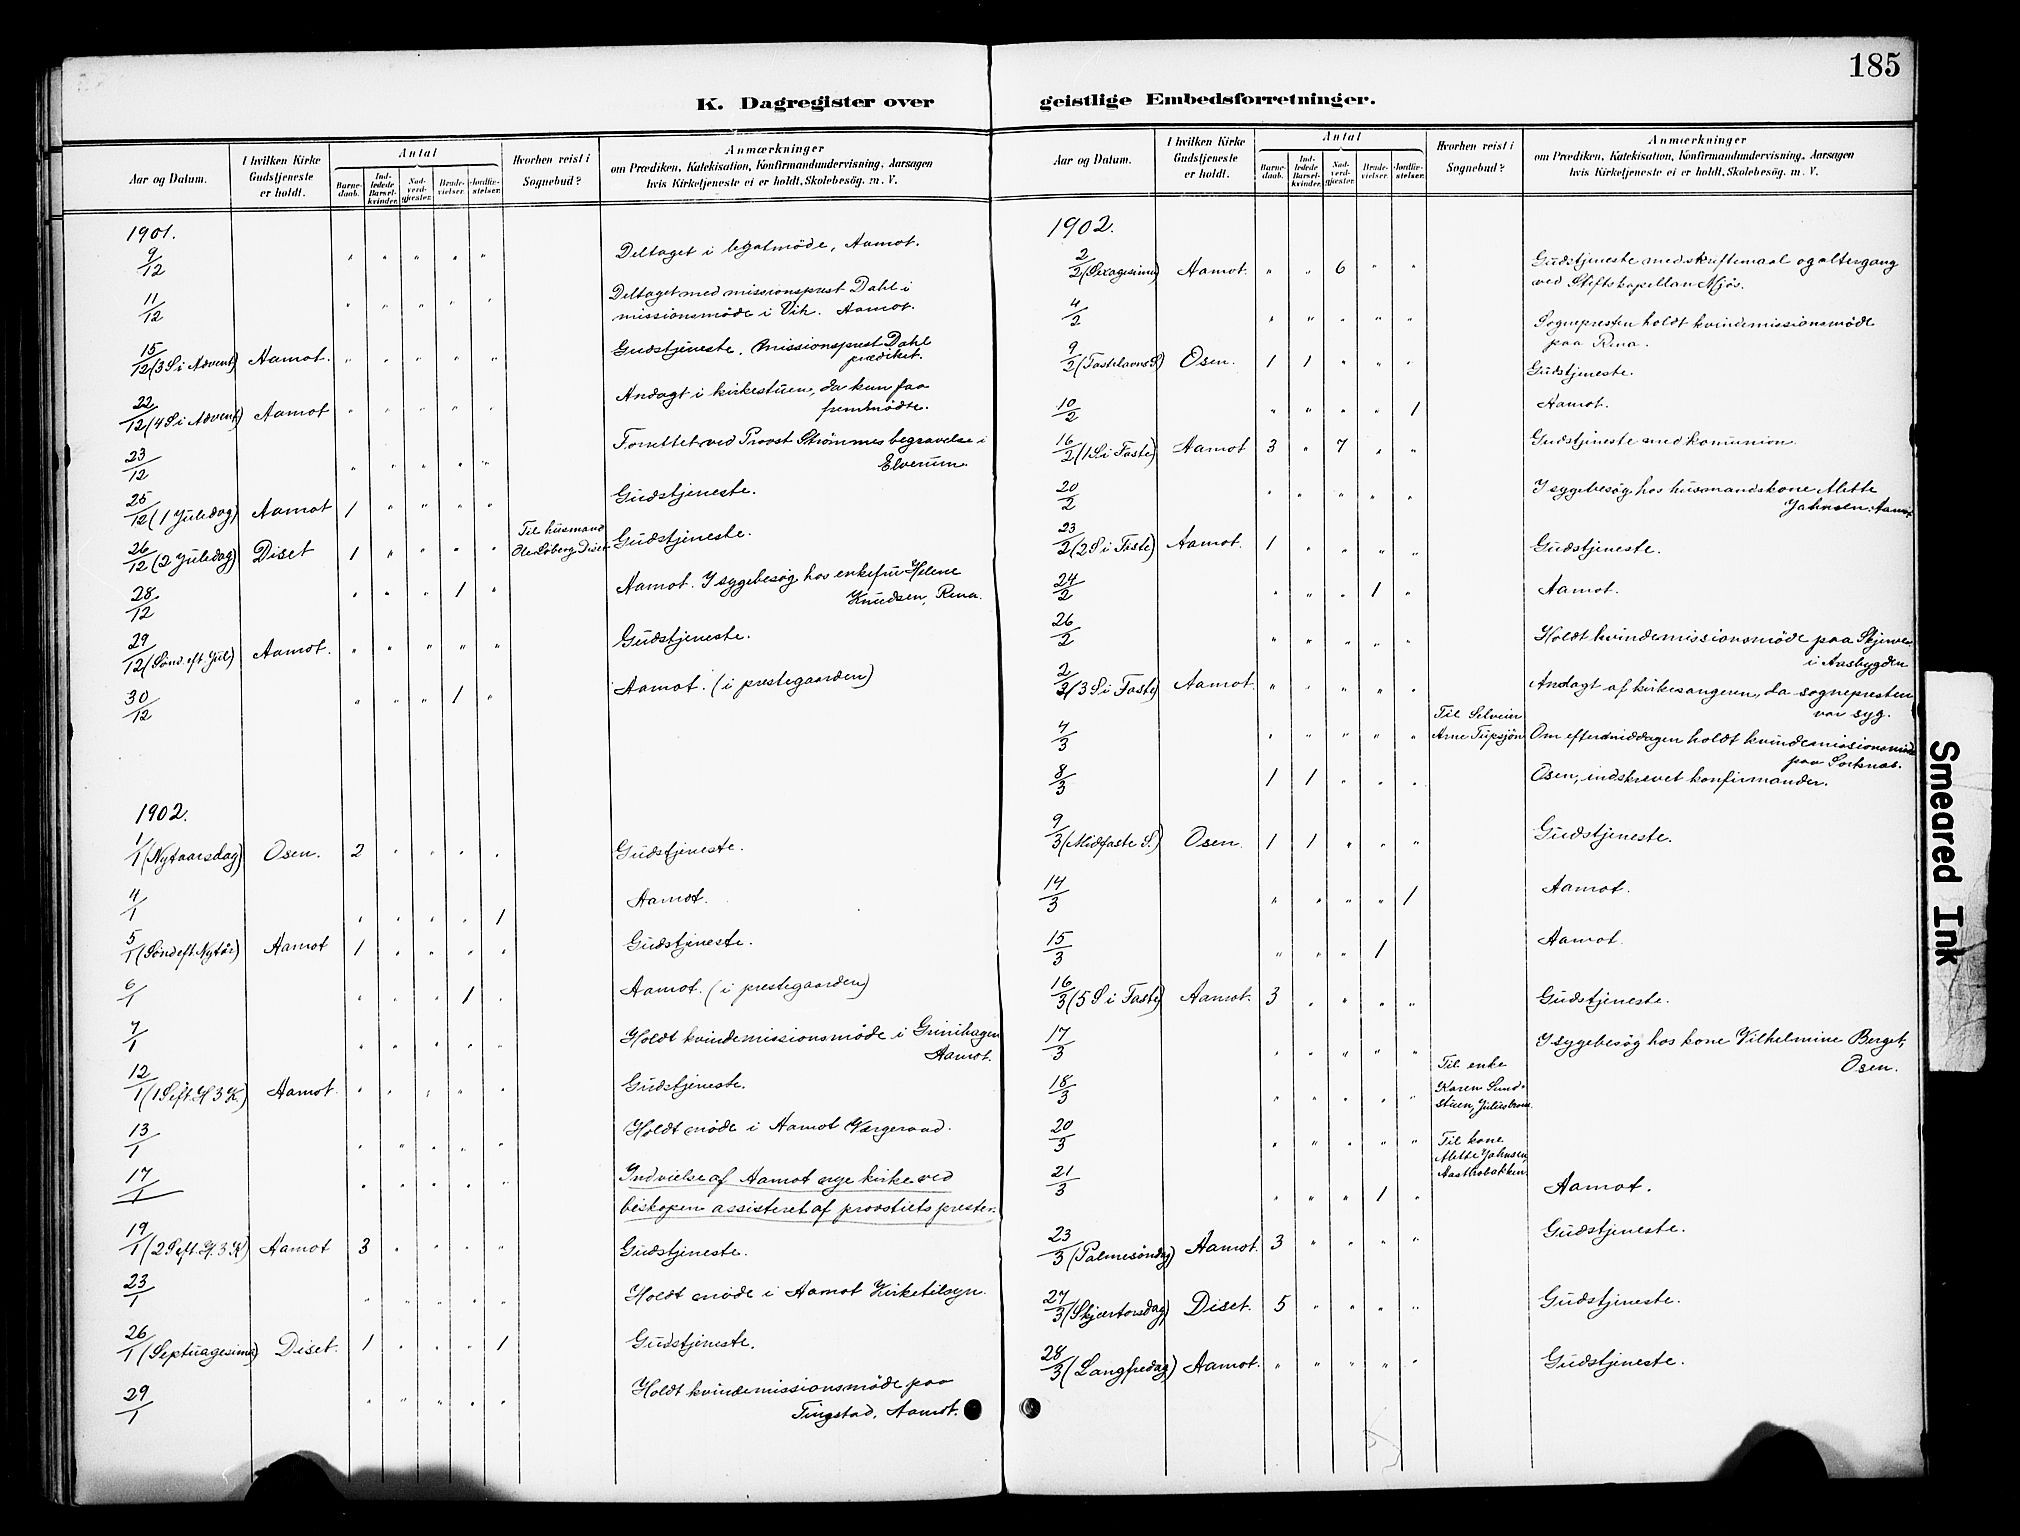 185
K. Dagregister over geistlige Embedsforretninger.
Aar og Datum.
I hvilken Kirke Gudstjeneste er holdt.
Antal
Barnedaab.
Indledede Barselkvinder.
Nadverdgjester.
Brudevielser.
Jordfæstelser.
Hvorhen reist i Sognebud?
Anmærkninger
om Prædiken, Katekisation, Konfirmandundervisning, Aarsagen
hvis Kirketjeneste ei er holdt, Skolebesøg. m. V.
1901.
9/12 " " " " " Deltaget i legatmöde, Aamot.
11/12 " " " " " Deltaget med missionsprest Dahl i
missionsmöde i Vih. Aamot.
15/12 (3 S. i Advent) Aamot. " " " " " Gudstjeneste. Missionsprest Dahl
prædiket.
22/12 (4 S. i Advent) Aamot " " " " " Andagt i kirkestuen, da kun faa
fremmödte.
23/12 " " " " " Forrettet ved Provst Strömmes begravelse i
Elverum.
25/12 (1 Juledag) Aamot 1 " " " " Gudstjeneste.
26/12 (2 Juledag) Diset 1 " " " " Til husmand
Ole Loberg, Diset Gudstjeneste.
28/12 " " " 1 " Aamot. I sygebesög hos enkefru Helene
Knudsen, Rena.
29/12 (Sönd. eft. Jul) Aamot. " " " " " Gudstjeneste.
30/12 " " " 1 " Aamot. (i prestegaarden)
1902.
1/1 (Nytaarsdag) Osen. 2 " " " " Gudstjeneste.
4/1 " " " " 1 Aamot.
5/1 (Sönd eft. Nytår) Aamot 1 " " " " Gudstjeneste.
6/1 " " " 1 " Aamot. (i prestegaarden)
7/1 " " " " " Holdt kvindemissionsmöde i Grinihagen
Aamot.
12/1 (1 S. eft. H 3 K.) Aamot. " " " " " Gudstjeneste.
13/1 " " " " " Holdt möde i Aamot Værgeraad.
17/1 " " " " " Indvielse af Aamot nye kirke ved
biskopen assisteret af provstiets prester.
19/1 (2 S. eft. H. 3. K) Aamot 3 " " " " Gudstjeneste.
23/1 " " " " " Holdt möde i Aamot Kirketilsyn.
26/1 (Septuagesima) Diset. 1 " " " 1 Gudstjeneste.
29/1 " " " " " Holdt kvindemissionsmöde paa
Tingstad, Aamot.
Aar og Datum.
I hvilken Kirke Gudstjeneste er holdt.
Antal
Barnedaab.
Indledede Barselkvinder.
Nadverdgjester.
Brudevielser.
Jordfæstelser.
Hvorhen reist i Sognebud?
Anmærkninger
om Prædiken, Katekisation, Konfirmandundervisning, Aarsagen
hvis Kirketjeneste ei er holdt, Skolebesøg. m. V.
1902.
2/2 (Sexagesima) Aamot. " " 6 " " Gudstjeneste med skriftemaal og altergang
ved Stiftskapellan Mjös.
4/2 " " " " " Sognepresten holdt kvindemissionsmöde
paa Rena.
9/2 (Fastelavns S.) Osen. 1 1 " " " Gudstjeneste.
10/2 " " " " 1 Aamot.
16/2 (1 S. i Faste) Aamot 3 " 7 " " Gudstjeneste med komunion.
20/2 " " " " " I sygebesög hos husmandskone Alette
Jahnsen, Aamot
23/2 (2 S. i Faste) Aamot. 1 " " " " Gudstjeneste.
24/2 " " " 1 " Aamot.
26/2 " " " " " Holdt kvindemissionsmöde paa
i Aasbygden
2/3 (3 S. i Faste) Aamot. " " " " " Andagt af kirkesangeren, da sognepresten
var syg.
4/3 " " " " " Til Selveier
Arne Om eftermiddagen holdt kvindemissionsmöde
paa
8/3 1 1 " " " Osen, indskrevet konfirmander.
9/3 (Midfaste S.) Osen. 1 1 " " " Gudstjeneste.
14/3 " " " " 1 Aamot.
15/3 " " " 1 Aamot.
16/3 (5 S. i Faste) Aamot. 3 " " " " Gudstjeneste.
17/3 " " " " " I sygebesög hos kone Vilhelmine Berget,
Osen.
18/3 " " " " " Til enke
Karen Sundstuen,
20/3 " " " " " Til kone
Alette Jahnsen,
Aasthobakken.
21/3 " " " 1 " Aamot.
23/3 (Palmesöndag) Aamot. 3 " " " " Gudstjeneste.
27/3 (Skjærtorsdag) Diset. 5 " " " " Gudstjeneste.
28/3 (Langfredag) Aamot. " " " " " Gudstjeneste.
Smeared Ink